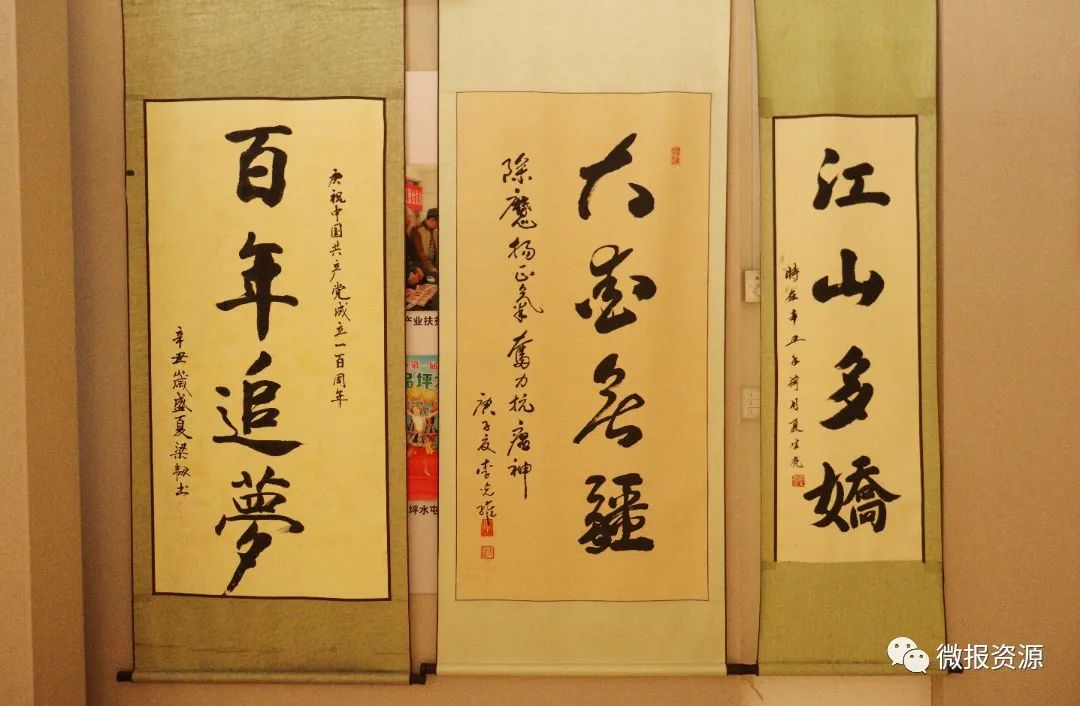 百年追夢
庆祝中国共产党成立一百周年
辛丑歲盛夏梁
大愛無疆
除魔扬正氣奮力抗瘟神
庚子夏李光
江山多嬌
時在辛丑年荷月夏
产业扶
第一届
坪水
坪水屯
微报资源